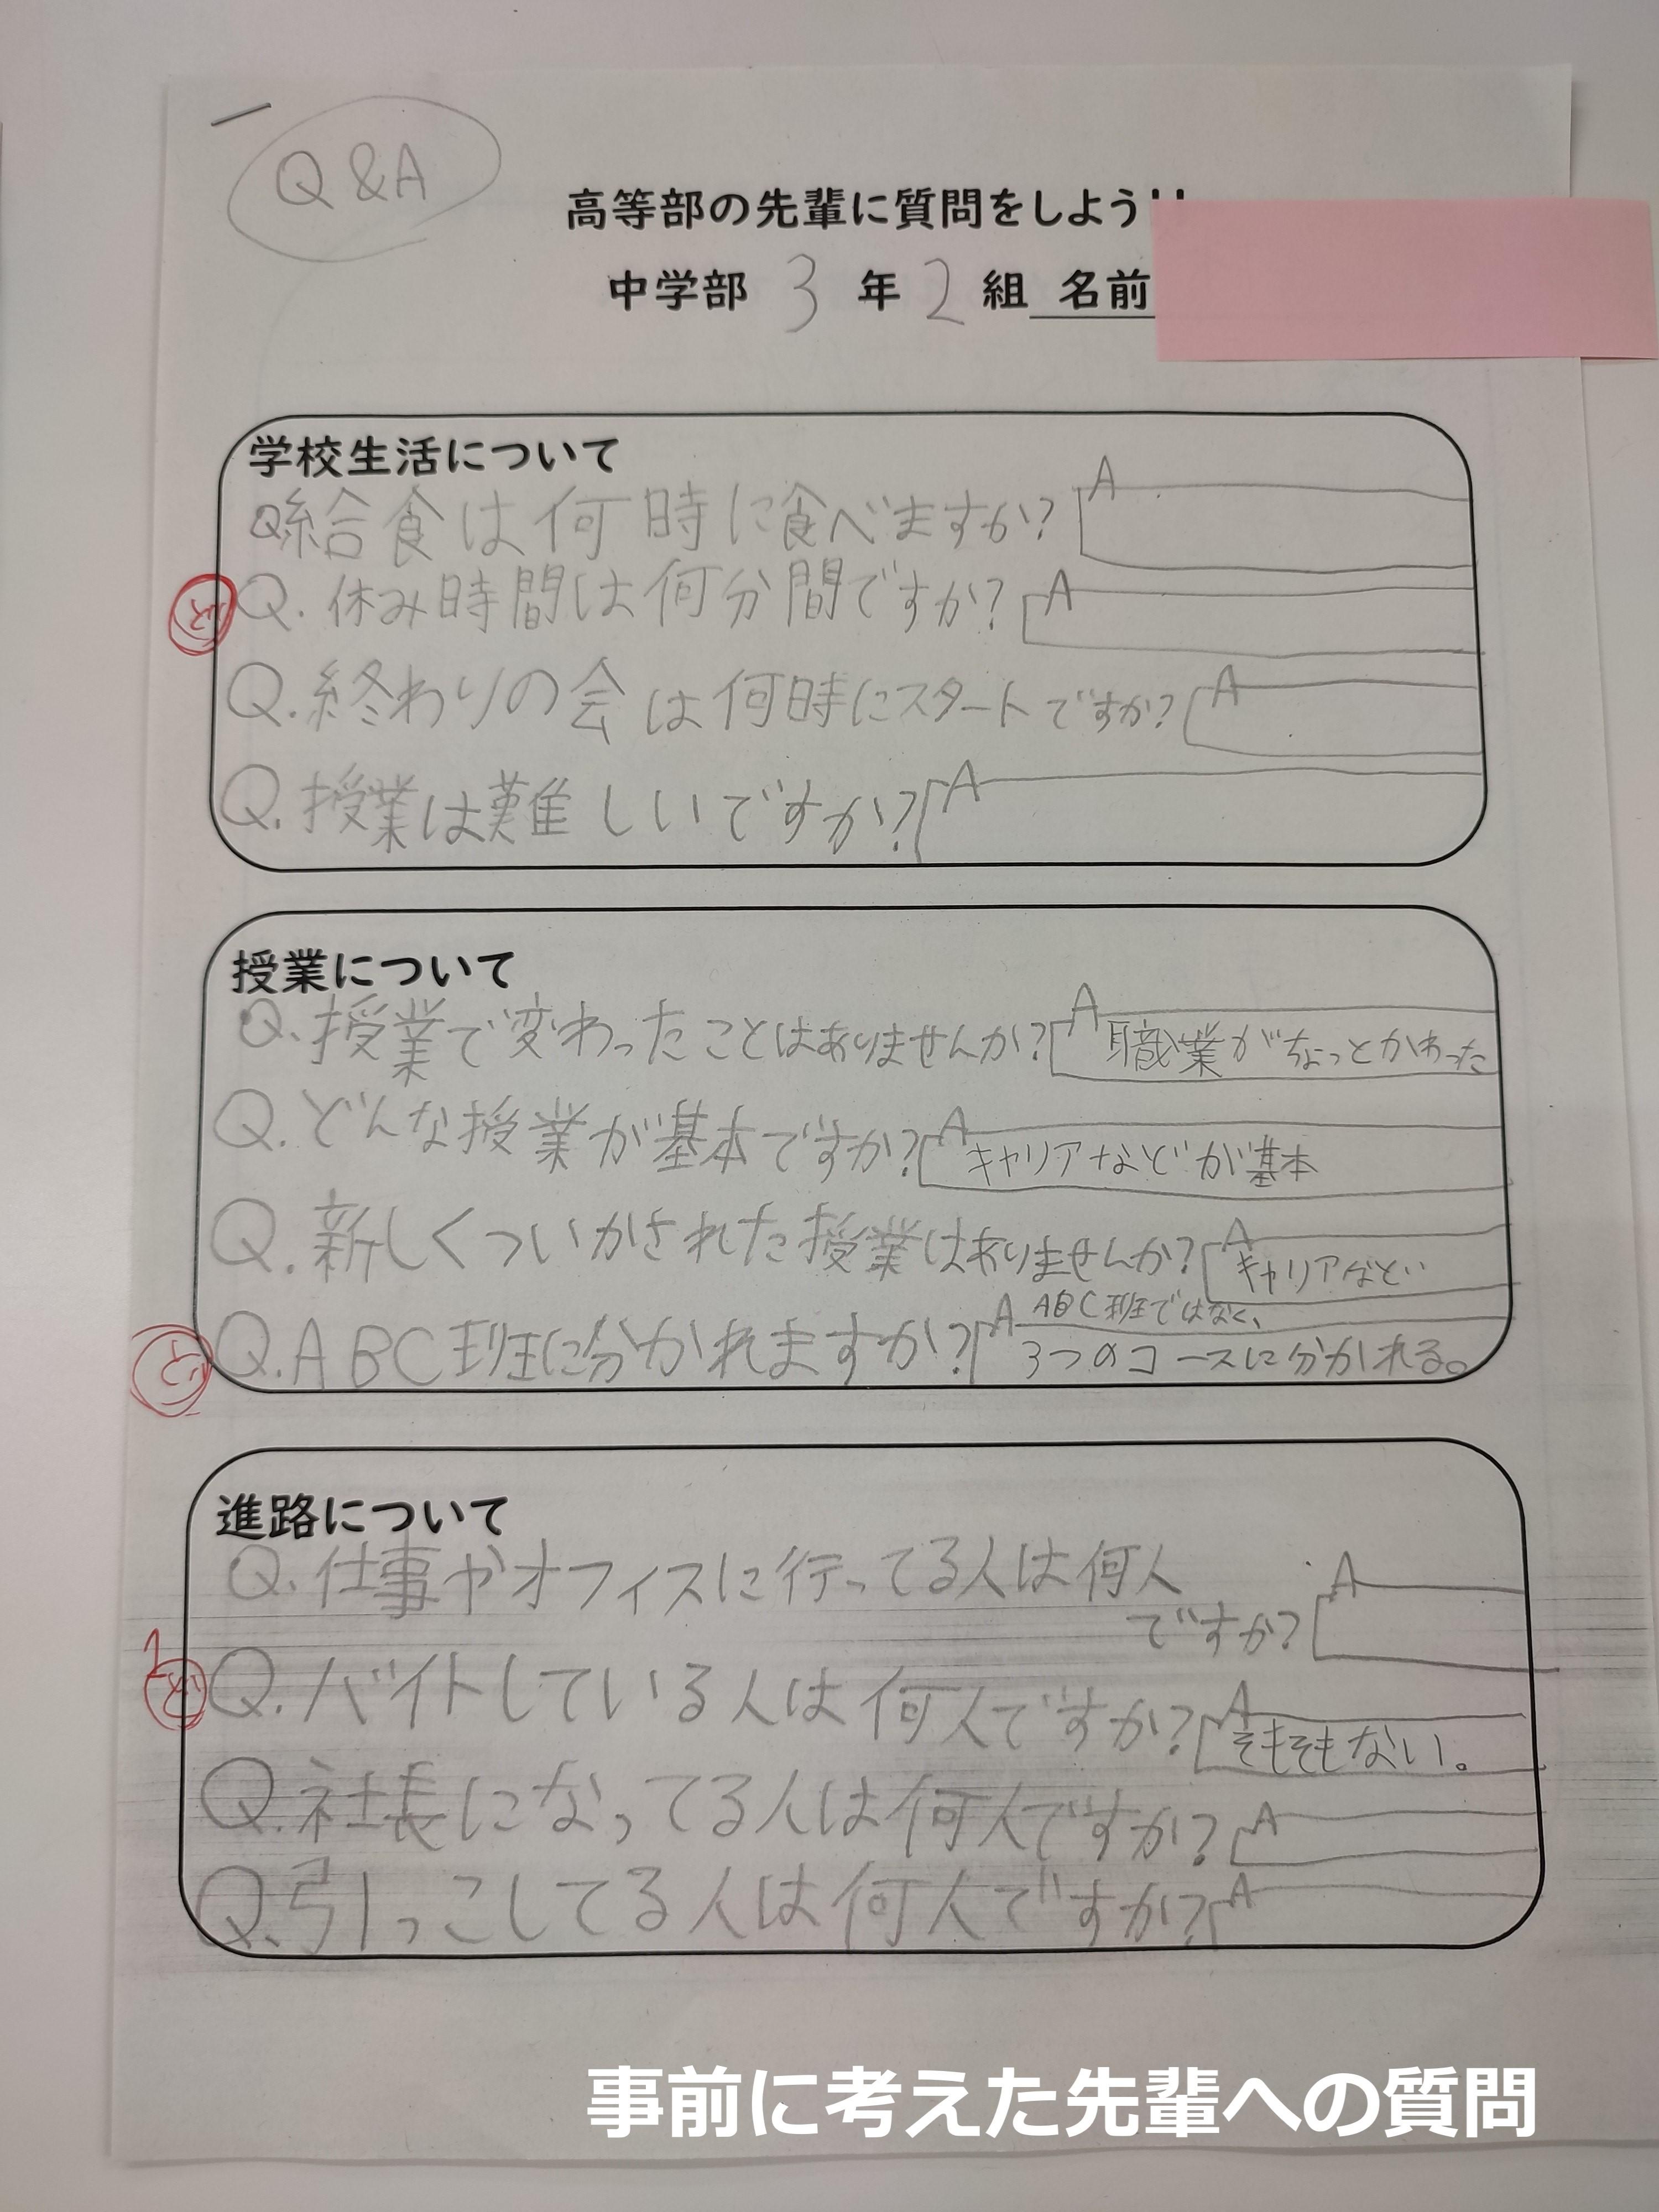 Q&A
高等部の先輩に質問をしよう!!
中学部 3 年 2 組 名前
学校生活について
Q給食は何時に食べますか? A
Q.休み時間は何分間ですか? A
Q.終わりの会は何時にスタートですか? A
Q.授業は難しいですか? A
授業について
Q.授業で変わったことはありませんか? A 職業がちょっとかわった
Q.どんな授業が基本ですか? A キャリアなどが基本
Q.新しくついかされた授業はありませんか? A キャリアなど
Q.ABC班に分かれますか? A ABC班ではなく、
3つのコースに分かれる。
進路について
Q.仕事やオフィスに行ってる人は何人
ですか? A
Q.バイトしている人は何人ですか? A そもそもない。
Q.社長になってる人は何人ですか? A
Q.引っこしてる人は何人ですか? A
事前に考えた先輩への質問